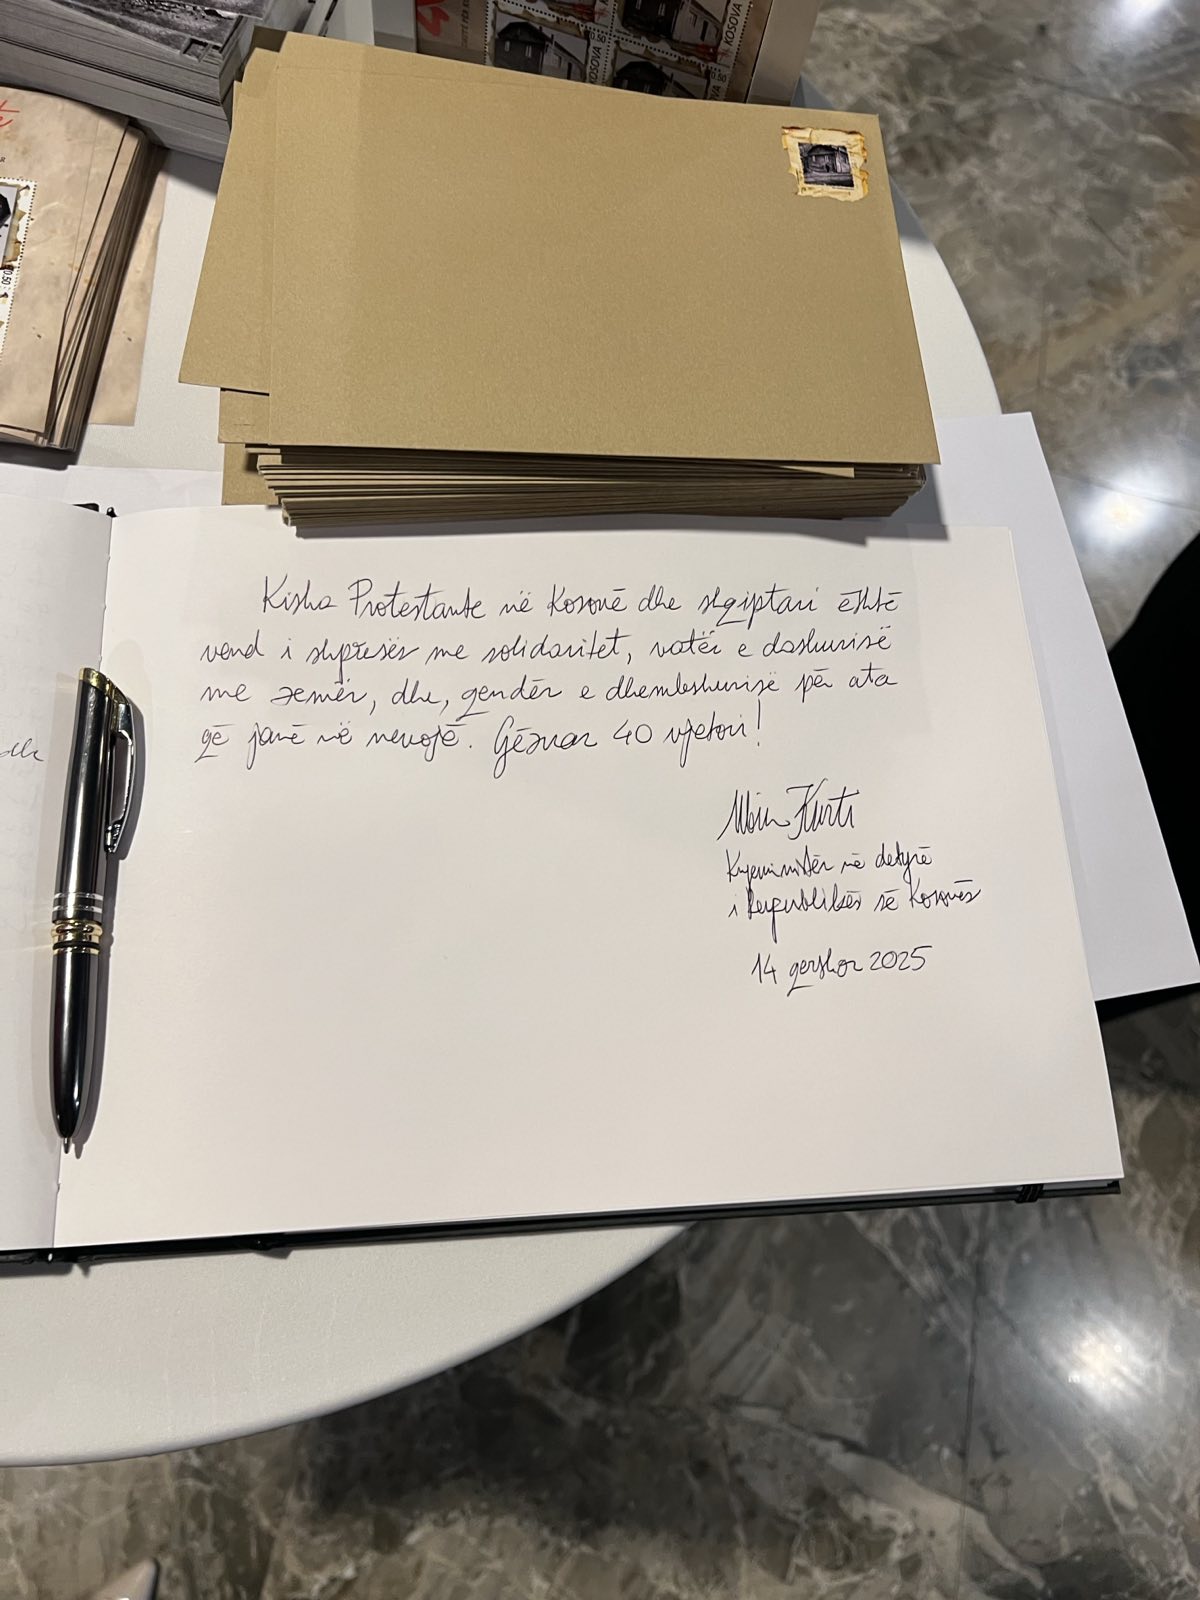 KOSOVA
0.50
KOSOVA
0.50
KOSOVA
0.50
Kisha Protestante në Kosovë dhe shqiptari është
vend i shpresës me solidaritet, vatër e dashurisë
me zemër, dhe, qendër e dhembshurisë për ata
që janë në nevojë. Gëzuar 40 vjetori!
Albin Kurti
Kryeministër në detyrë
i Republikës së Kosovës
14 qershor 2025
dhe